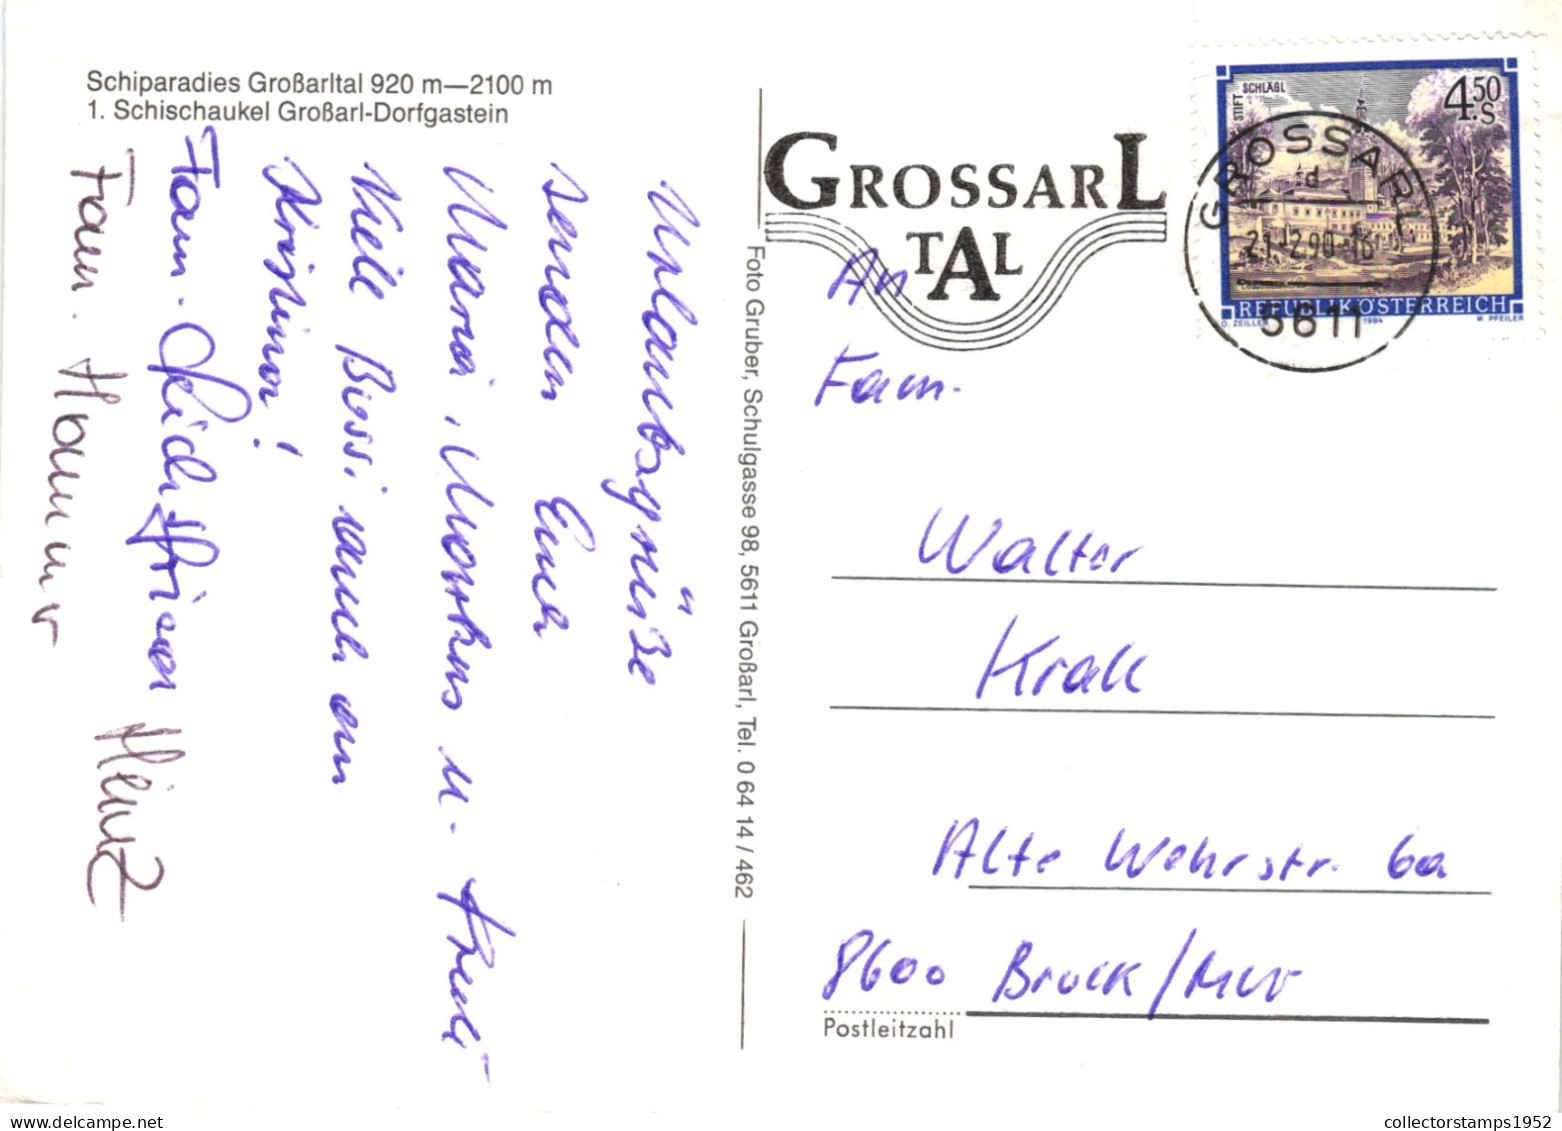 Schiparadies Großarltal 920 m—2100 m
1. Schischaukel Großarl-Dorfgastein
Urlaubsgrüße
senden Euch
Maria, Markus u.
Viele Bussi auch an
Kristina!
Fam.
Fam. Hammer
Heinz
Foto Gruber, Schulgasse 98, 5611 Großarl, Tel. 0 64 14 / 462
GROSSARL
TAL
STIFT SCHLÄGL
4.50 S
REPUBLIK ÖSTERREICH
O. ZEILLER 1984 W. PFEILER
GROSSARL
d
21.-2.90-16
5611
An
Fam.
Walter
Krall
Alte Wehrstr. 6a
8600 Bruck/Mur
Postleitzahl
collectorstamps1952